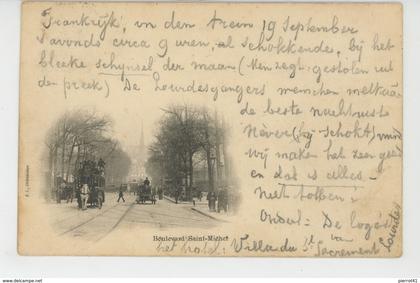 Frankrijk, in den trein 19 September
's avonds circa 9 uren, al schokkende, bij het
bleeke schijnsel der maan (Men zegt: gestolen uit
de preek) De Lourdesgangers wenschen
de beste nachtrust
Never (bij schokt)
wij maken het zeer goed
en dat is alles.
niet
De logés
van
Lourdes
het hotel: Villa du St Sacrement
Boulevard Saint-Michel